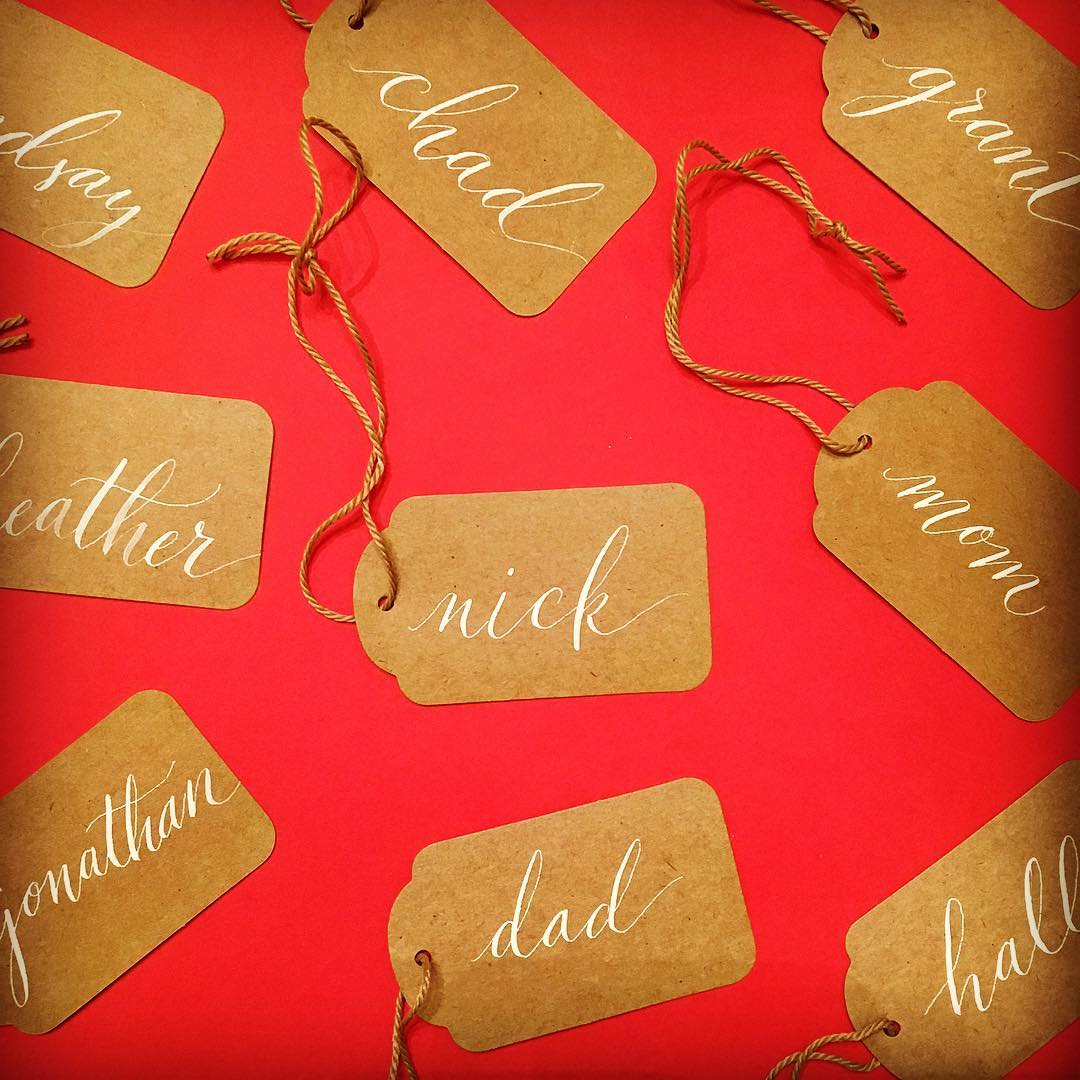 dsay
chad
grant
eather
nick
mom
jonathan
dad
hall